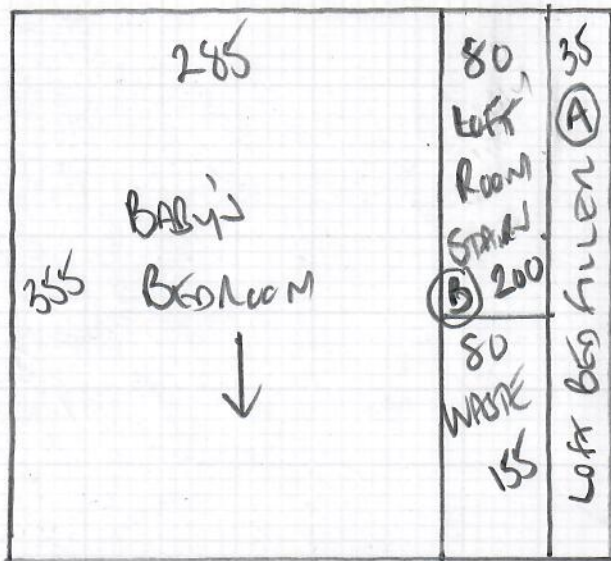 285
BABY'S
355 BEDROOM
80
LOFT
ROOM
STAIRS
B 200
80
WASTE
155
35
A
LOFT BED FILLER